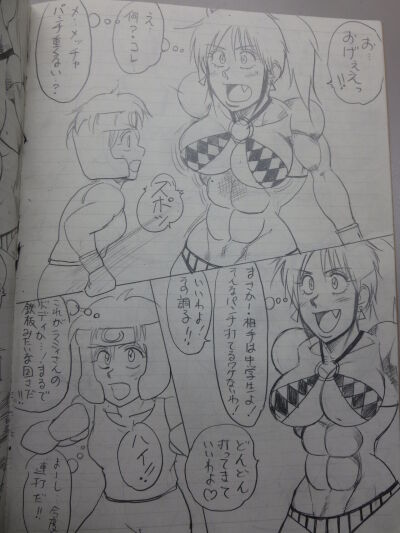 お…
おげぇえっ
!!
え…
何?コレ
メ、メッチャ
パンチ重くない?
スポッ
まさか!相手は中学生よ!
そんなパンチ打てるワケないわ!
いいわよ!
その調子!!
どんどん
打ってきて
いいわよ♡
ハイ!!
これがラミィさんの
ボディか…!まるで
鉄板みたいな固さだ!!
よーし 今度
連打だ!!